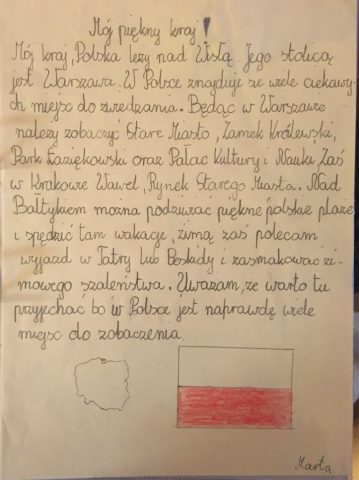 Mój piękny kraj!
Mój kraj, Polska leży nad Wisłą. Jego stolicą
jest Warszawa. W Polsce znajduje się wiele ciekawy-
ch miejsc do zwiedzania. Będąc w Warszawie
należy zobaczyć Stare Miasto, Zamek Królewski,
Park Łazienkowski oraz Pałac Kultury i Nauki, Zaś
w Krakowie Wawel, Rynek Starego Miasta. Nad
Bałtykiem można podziwiać piękne polskie plaże
i spędzić tam wakacje, zimą zaś polecam
wyjazd w Tatry lub Beskidy i zasmakować zi-
mowego szaleństwa. Uważam, że warto tu
przyjechać bo w Polsce jest naprawdę wiele
miejsc do zobaczenia.
Marta